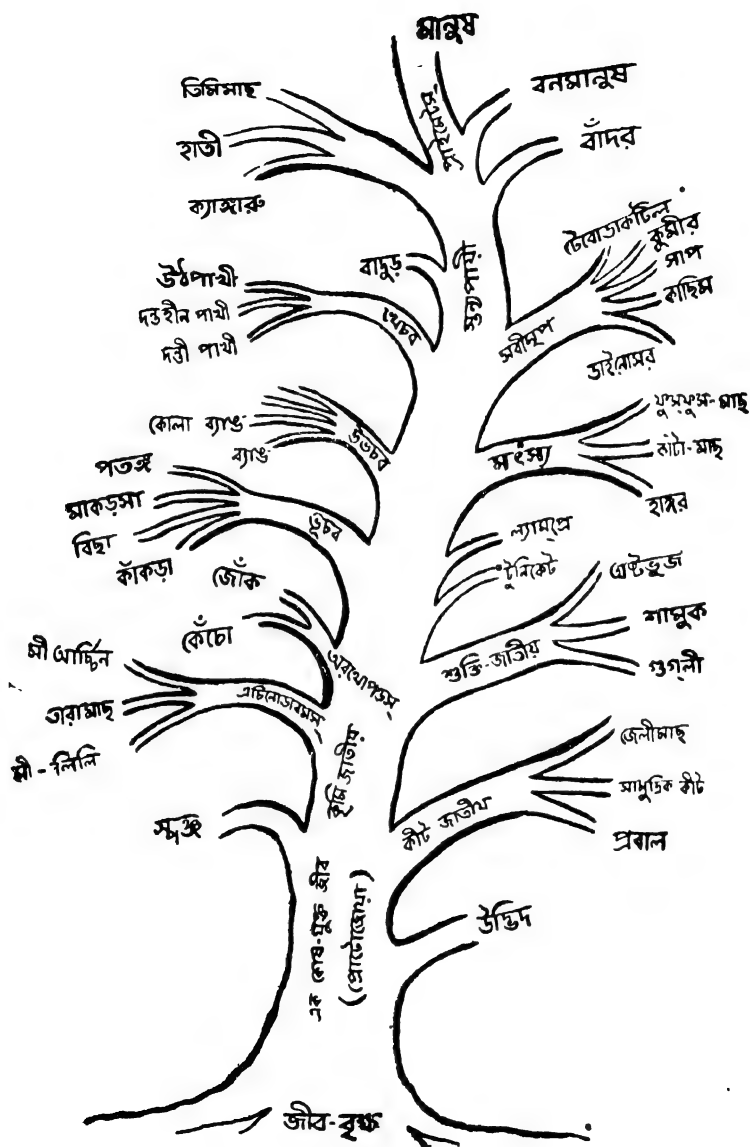 মানুষ
প্রাইমেটস্
বনমানুষ
বাঁদর
তিমিমাছ
হাতী
ক্যাঙ্গারু
বাদুড়
স্তন্যপায়ী
টেরোডাকটিল
কুমীর
সাপ
কাছিম
ডাইনোসর
সরীসৃপ
উঠপাখী
দন্তহীন পাখী
দন্তী পাখী
খেচর
কোলা ব্যাঙ
ব্যাঙ
উভচর
ফুস্‌ফুস-মাছ
কাঁটা-মাছ
হাঙ্গর
মৎস্য
পতঙ্গ
মাকড়সা
বিছা
কাঁকড়া
ভূচর
ল্যাম্প্রে
টুনিকেট
জোঁক
কেঁচো
অরথোপডস্
অষ্টভুজ
শামুক
গুগ্‌লী
শুক্তি-জাতীয়
সী আর্চ্চিন
তারামাছ
সী-লিলি
এচিনোডারমস্
কৃমি জাতীয়
জেলীমাছ
সামুদ্রিক কীট
প্রবাল
কীট জাতীয়
স্পঞ্জ
এক কোষ-যুক্ত জীব
(প্রোটোজোয়া)
উদ্ভিদ
জীব-বৃক্ষ